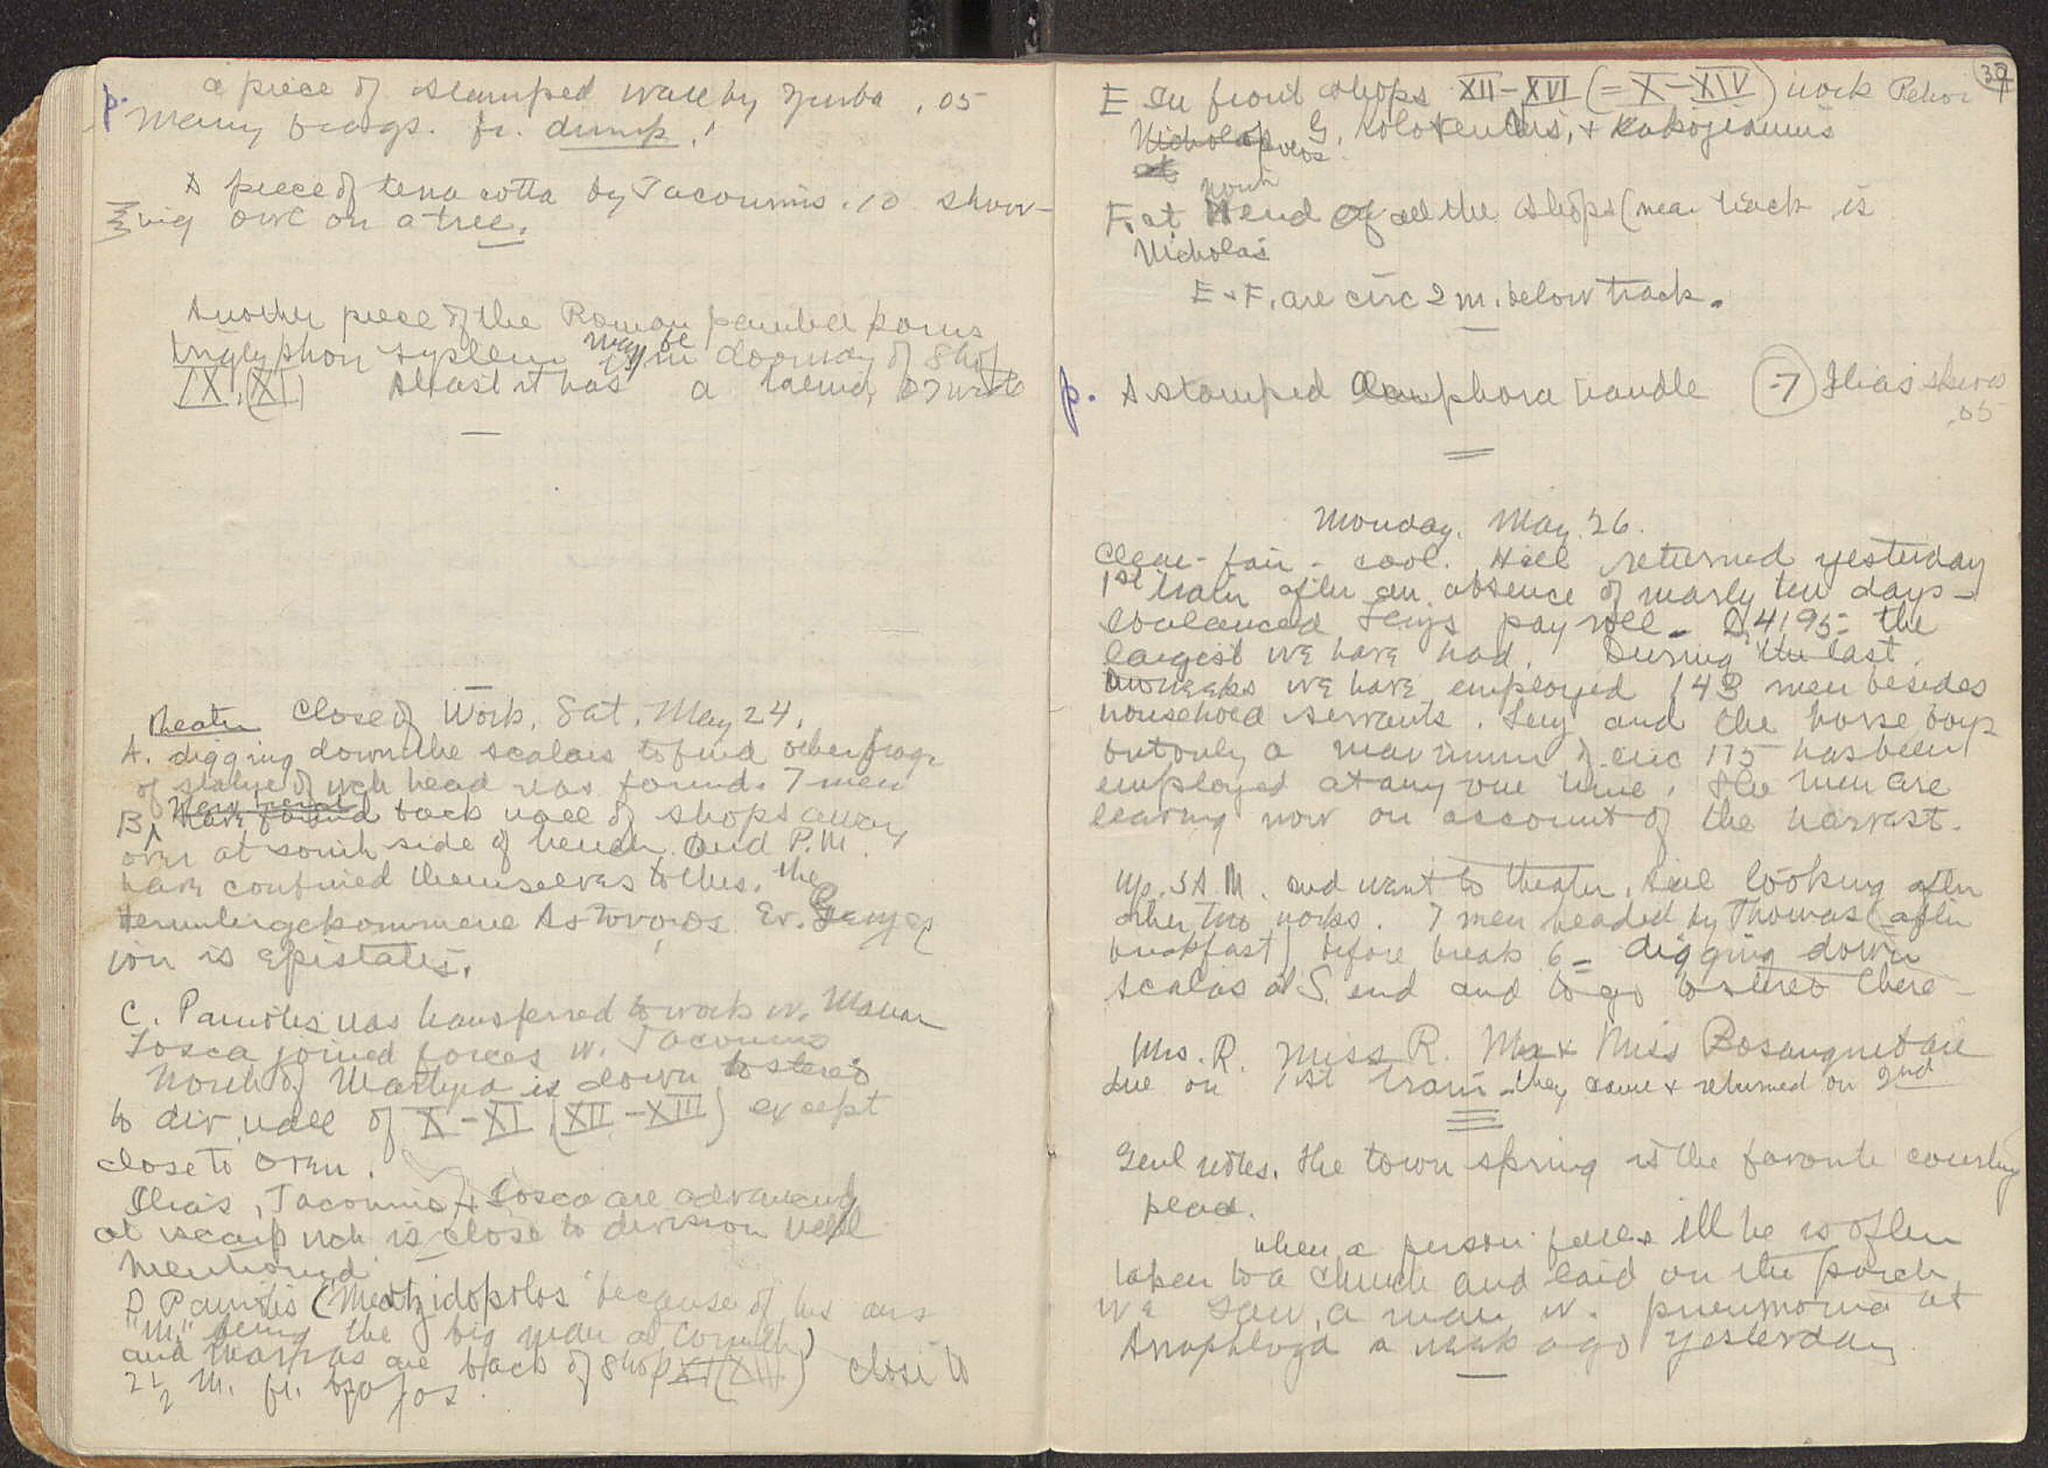 p. a piece of stamped ware by Zerba .05
Many frags. fr. dump.
A piece of terra cotta by Tacoumis .10 show-
ing owl on a tree.
Another piece of the Roman painted poros
triglyphon system may be in doorway of Shop
IX. (XI) At least it has a
Theater Close of Work, Sat. May 24.
A. digging down the scalais to find other frags
of statue of wch head was found. 7 men
B. back wall of shops away
over at south side of trench and P.M.
have confined themselves to this. The
heruntergekommene
ion is Epistates.
C. Panotis was transferred to work w. Mahar
Losca joined forces w. Tacoumis
North of Martyra is down to stereo
to div. wall of X-XI (XII-XIII) except
close to oven.
Ilias, Tacoumis & Losca are advancing
at scarp wch is close to division wall
mentioned
D Panotis (Mertzidopolos because of his airs
"M." being the big man at Corinth)
and are back of Shop XI (XIII) close to
2 1/2 m. fr.
39
E In front shops XII-XVI (= X-XIV) work
G. Kolokendris, & Kakojiannis
F. at north end of all the shops (near track is
Nicholas
E & F. are circ 2 m. below track.
p. A stamped amphora handle 7 Ilias
.05
Monday. May 26.
Clear - fair - cool. Hill returned yesterday
1st train after an absence of nearly ten days -
balanced Lenys pay roll - D,4195= the
largest we have had. During the last
two weeks we have employed 143 men besides
household servants. Leny and the horse boys
but only a maximum of circ 115 has been
employed at any one time. The men are
leaving now on account of the harvest.
Up. 5 A.M. and went to theater, Hill looking after
other two works. 7 men headed by Thomas (after
breakfast) before break 6 = digging down
scalas at S. end and to go to stereo there -
Mrs. R. Miss R. Mr & Miss Bosanquet are
due on 1st train - they came & returned on 2nd
Genl notes. The town spring is the favorite courting
place.
when a person falls ill he is often
taken to a church and laid on the porch
We saw a man w. pneumonia at
a week ago yesterday